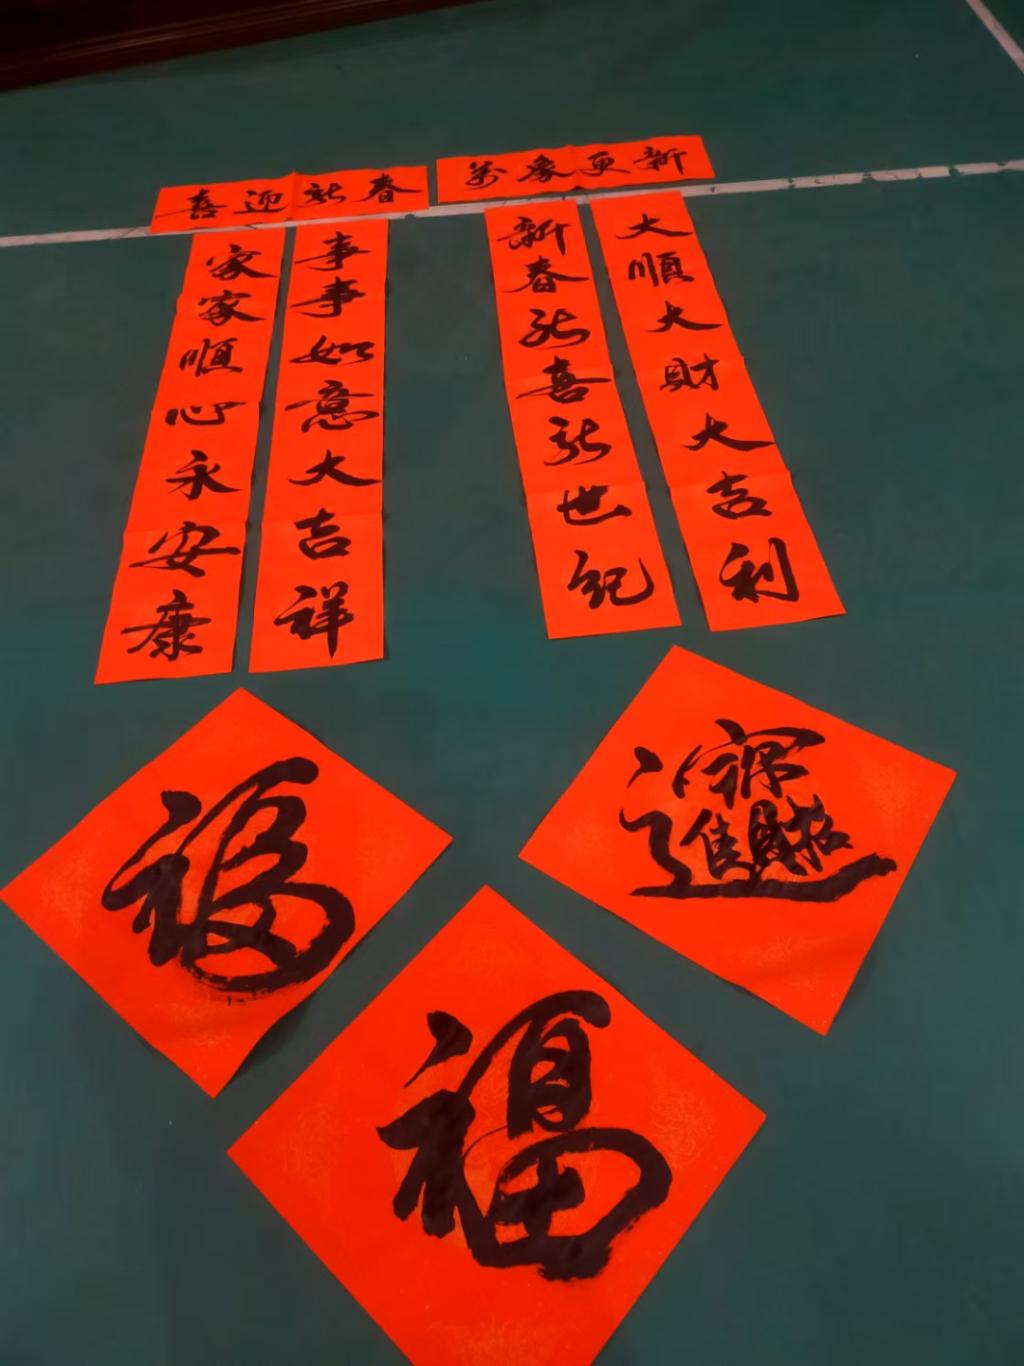 喜迎新春
家家順心永安康
事事如意大吉祥
萬象更新
新春新喜新世紀
大順大財大吉利
福
招財進寶
福